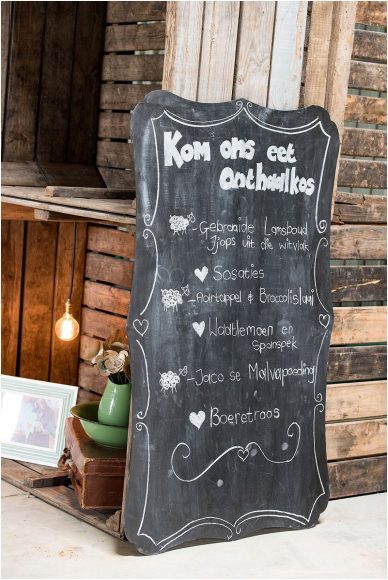 Kom ons eet
onthaalkos
-Gebraaide Lamsboud
Tjops uit die witvlak
Sosaties
-Aartappel & Broccolislaai
Waatlemoen en
Spanspek
-Jaco se Malvapoeding
Boeretroos